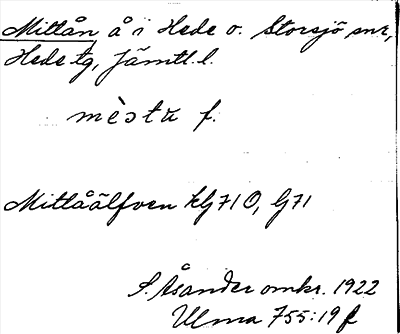 Mittån å i Hede o. Storsjö snr,
Hede tg, Jämtl. l.
mèsta f.
Mittåälfven kG71O, G71
S. Åsander omkr. 1922
Ulma 755:19 f